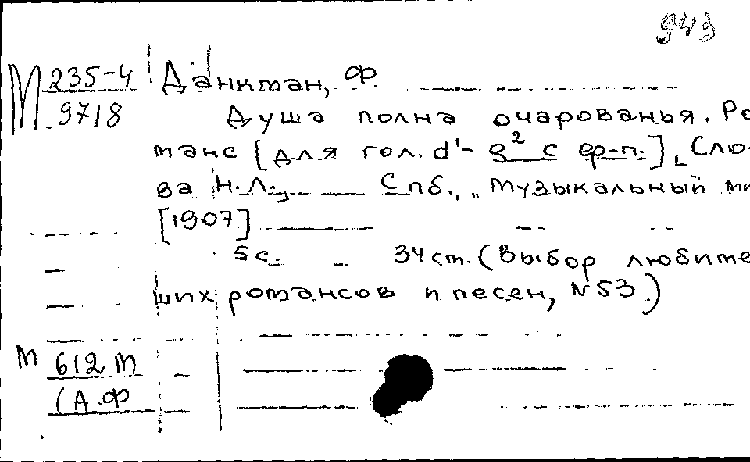 949
М 235-4 Данкман, Ф.
9718 Душа полна очарованья. Ро
манс [для гол. d¹-g² с фп.], Сло
ва Н.Л. Спб., "Музыкальный ми
[1907]
5 с. 34 см. (Выбор любите
ших романсов и песен, N53.)
М 612 М
(А.Ф